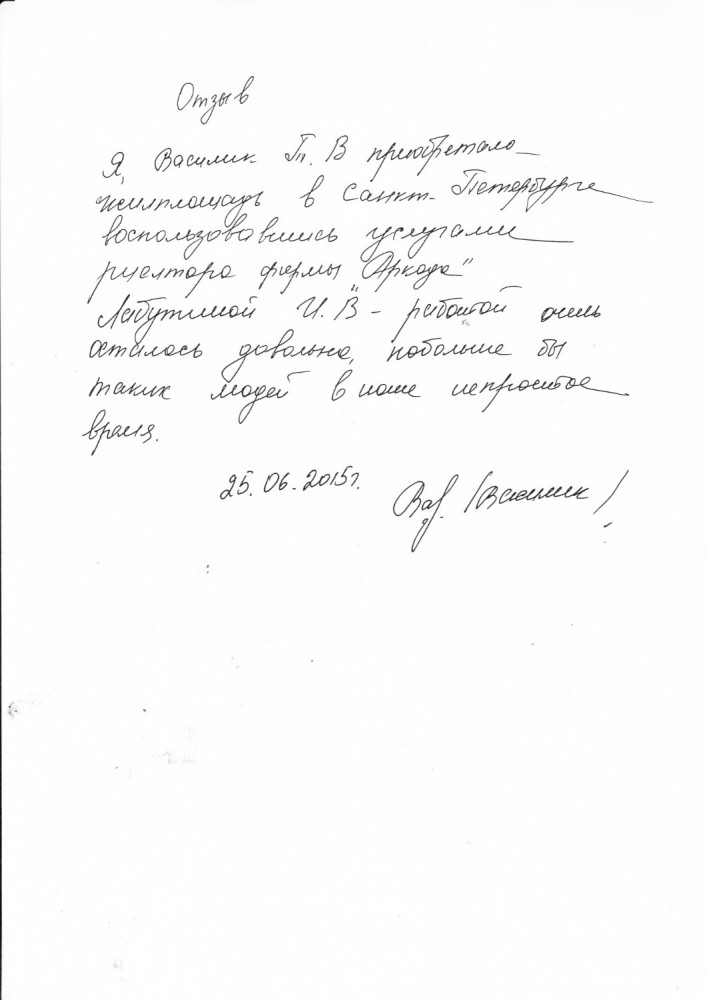 Отзыв
Я, Василик Т. В приобретала
жилплощадь в Санкт-Петербурге
воспользовавшись услугами
риелтора фирмы "Аркада"
Лабутиной И. В - работой очень
осталась довольна, побольше бы
таких людей в наше непростое
время.
25.06.2015г.
Вас. /Василик/